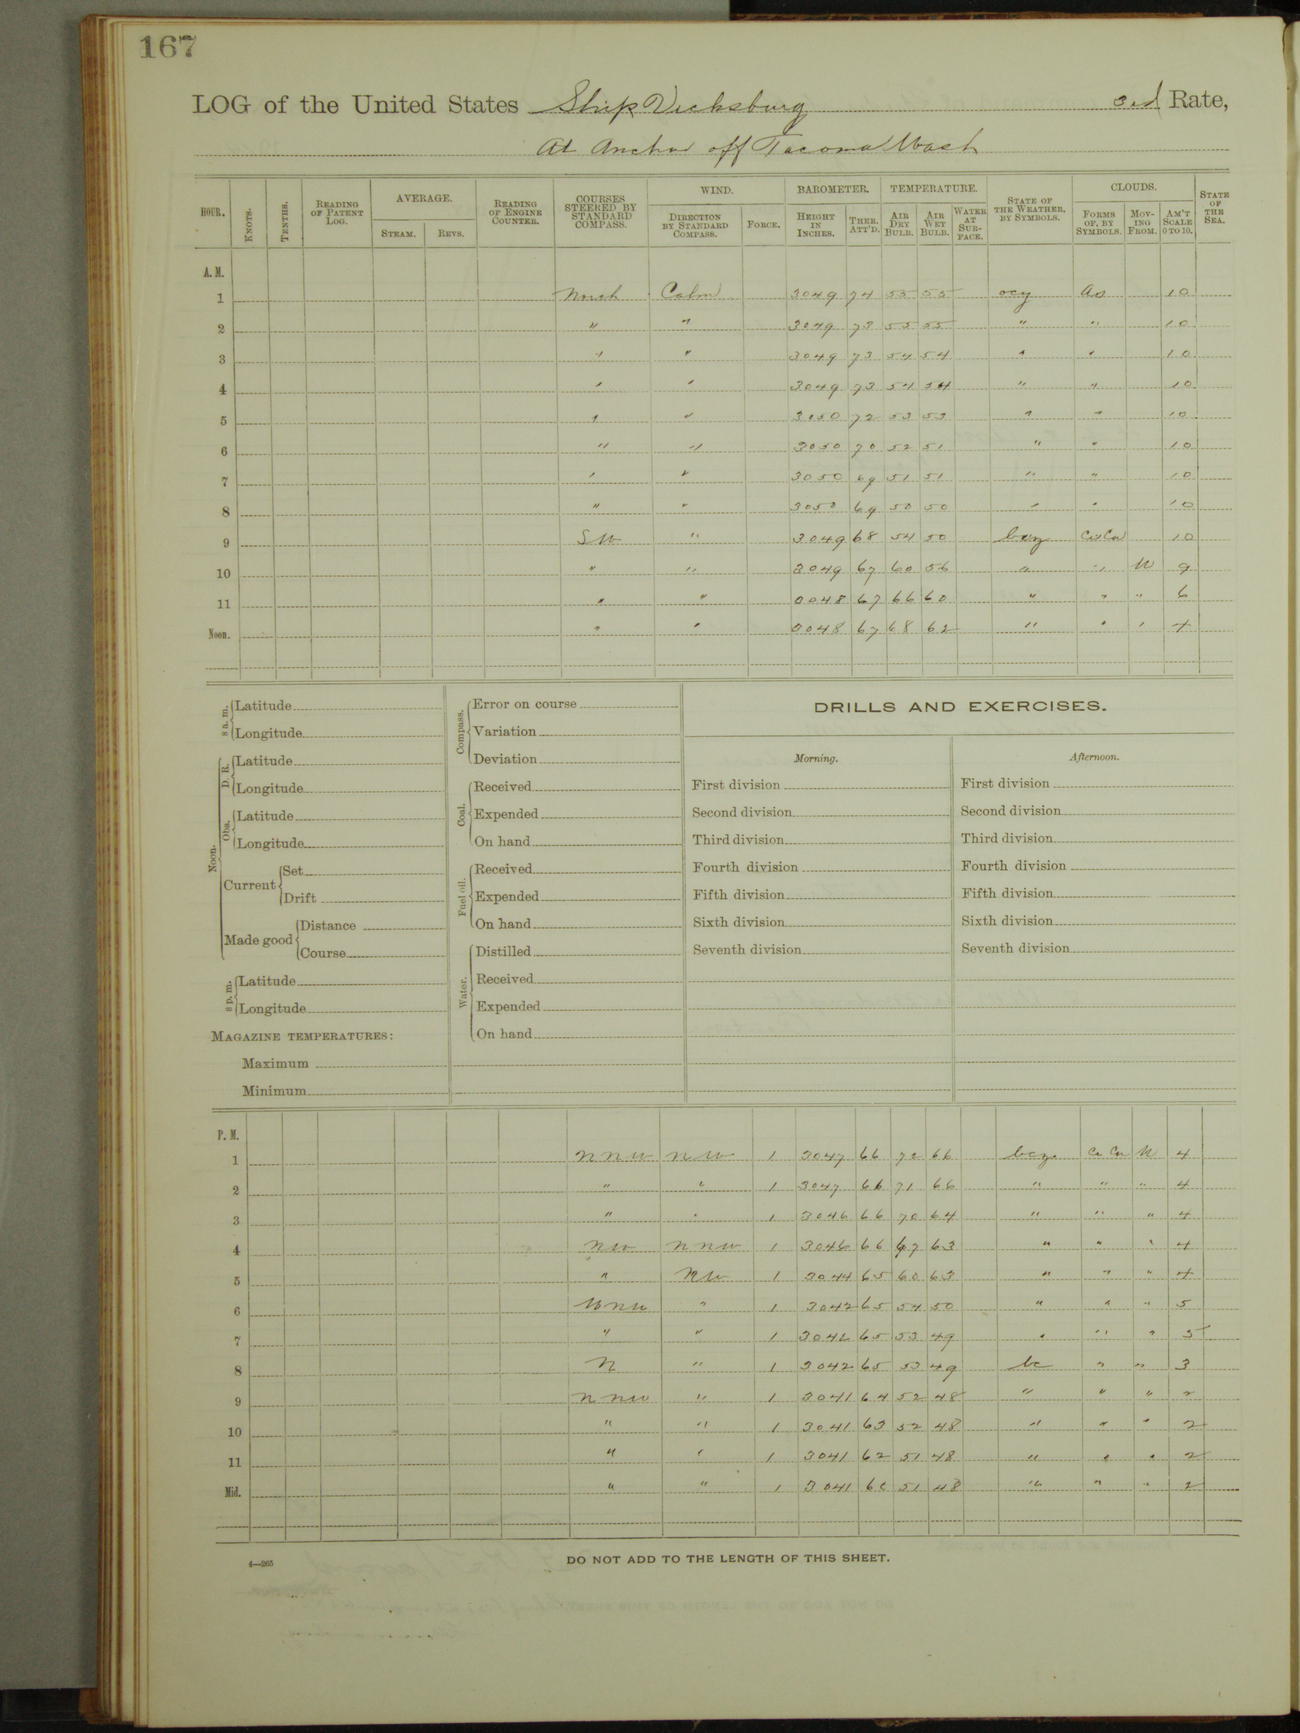 167
LOG of the United States Ship Vicksburg 3rd Rate,
At Anchor off Tacoma Wash
HOUR. KNOTS. TENTHS. READING OF PATENT LOG. AVERAGE. STEAM. REVS. READING OF ENGINE COUNTER. COURSES STEERED BY STANDARD COMPASS. WIND. DIRECTION BY STANDARD COMPASS. FORCE. BAROMETER. HEIGHT IN INCHES. THER. ATT'D. TEMPERATURE. AIR DRY BULB. AIR WET BULB. WATER AT SURFACE. STATE OF THE WEATHER, BY SYMBOLS. CLOUDS. FORMS OF, BY SYMBOLS. MOVING FROM. AM'T SCALE 0 TO 10. STATE OF THE SEA.
A. M.
1 North Calm 3049 74 55 55 ocy As 10
2 " " 3049 73 55 55 " " 10
3 " " 3049 73 54 54 " " 10
4 " " 3049 73 54 54 " " 10
5 " " 3050 72 53 53 " " 10
6 " " 3050 70 52 51 " " 10
7 " " 3050 69 51 51 " " 10
8 " " 3050 69 50 50 " " 10
9 SW " 3049 68 54 50 bcy 10
10 " " 3049 67 60 56 " " W 9
11 " " 3048 67 66 60 " " " 6
Noon. " " 3048 67 68 62 " " " 4
8 a. m. Latitude
Longitude
Noon. D. R. Latitude
Longitude
Obs. Latitude
Longitude
Current Set
Drift
Made good Distance
Course
8 p. m. Latitude
Longitude
MAGAZINE TEMPERATURES:
Maximum
Minimum
Compass. Error on course
Variation
Deviation
Coal. Received
Expended
On hand
Fuel oil. Received
Expended
On hand
Water. Distilled
Received
Expended
On hand
DRILLS AND EXERCISES.
Morning.
First division
Second division
Third division
Fourth division
Fifth division
Sixth division
Seventh division
Afternoon.
First division
Second division
Third division
Fourth division
Fifth division
Sixth division
Seventh division
P. M.
1 NNW NW 1 3047 66 72 66 bcz Ci Cu W 4
2 " " 1 3047 66 71 66 " " " 4
3 " " 1 3046 66 70 64 " " " 4
4 NW NNW 1 3046 66 67 63 " " " 4
5 " NW 1 3044 65 60 63 " " " 4
6 WNW " 1 3042 65 54 50 " " " 5
7 " " 1 3042 65 53 49 " " " 5
8 N " 1 3042 65 53 49 bc " " 3
9 NNW " 1 3041 64 52 48 " " " 2
10 " " 1 3041 63 52 48 " " " 2
11 " " 1 3041 62 51 48 " " " 2
Mid. " " 1 3041 60 51 48 " " " 2
4—265
DO NOT ADD TO THE LENGTH OF THIS SHEET.